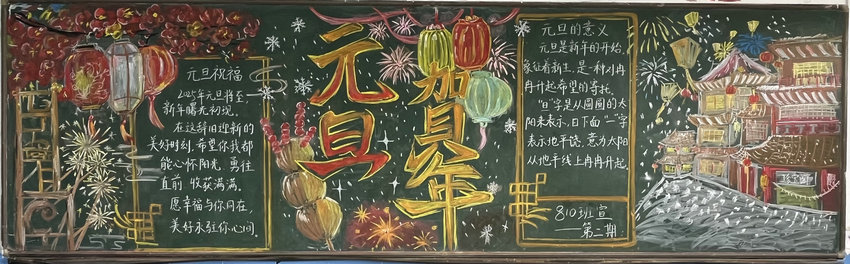 元旦祝福
2025年元旦将至
新年曙光初现
在这辞旧迎新的
美好时刻,希望你我都
能心怀阳光 勇往
直前 收获满满。
愿幸福与你同在
美好永驻你心间。
元旦
贺年
元旦的意义
元旦是新年的开始,
象征着新生,是一种对冉
冉升起希望的寄托。
"旦"字是从圆圆的太
阳来表示,日下面"一"字
表示地平线,意为太阳
从地平线上冉冉升起。
810班宣
——第二期